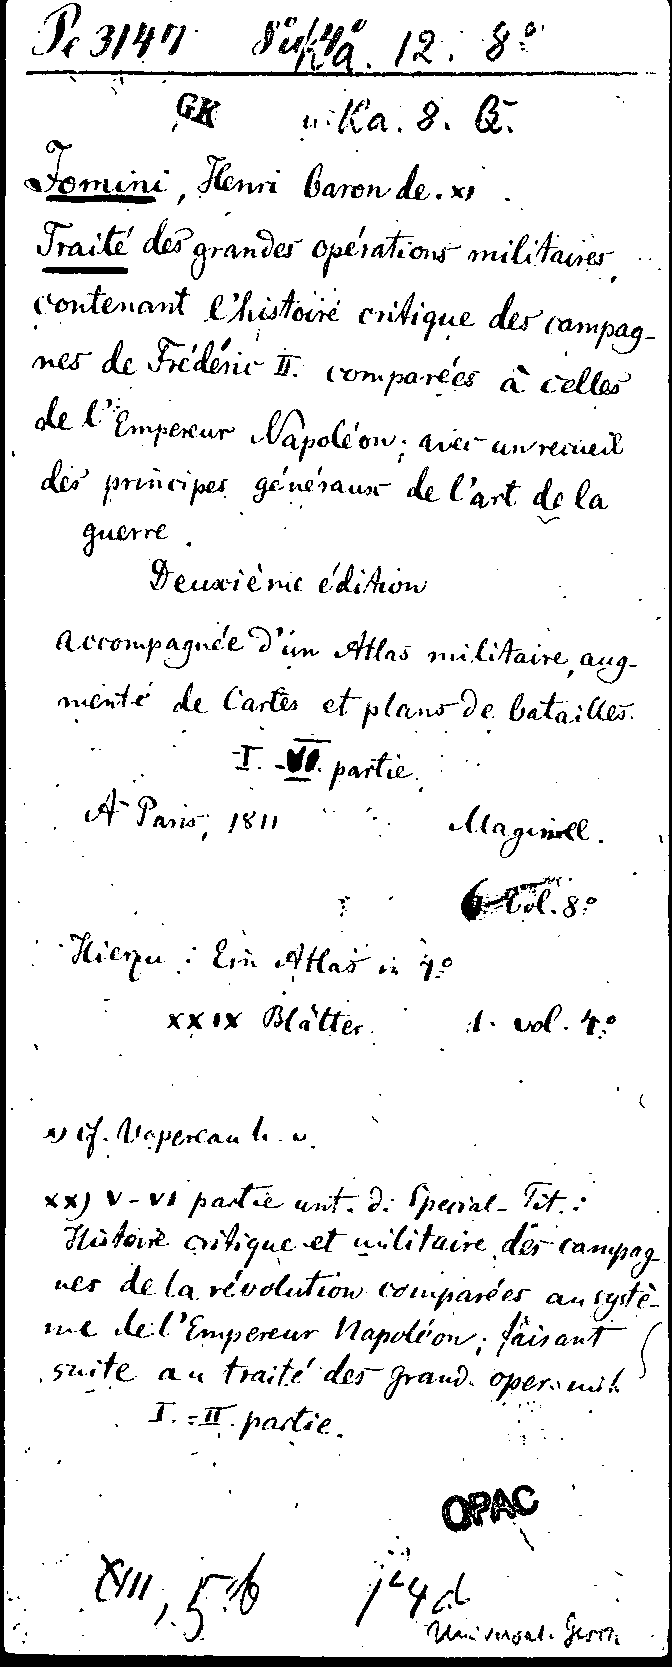 Pc 3147 8° u. 4° Ka. 12. 8°
GK u. Ka. 8. B.
Jomini, Henri Baron de. x)
Traité des grandes opérations militaires,
contenant l'histoire critique des campag-
nes de Frédéric II. comparées à celles
de l'Empereur Napoléon; avec un recueil
des principes généraux de l'art de la
guerre.
Deuxième édition
accompagnée d'un Atlas militaire, aug-
menté de Cartes et plans de batailles.
I. - VI. partie.
A Paris, 1811 Magimel.
6 Vol. 8°
Hierzu: Ein Atlas in 4°
XXIX Blätter. 1. vol. 4°
x) cf. Vapereau h. v.
xx) V-VI partie unt. d. Special-Tit.:
Histoire critique et militaire des campag-
nes de la révolution comparées au systè-
me de l'Empereur Napoléon; faisant
suite au traité des grand. oper. milit.
I. - II. partie.
OPAC
XVII, 56